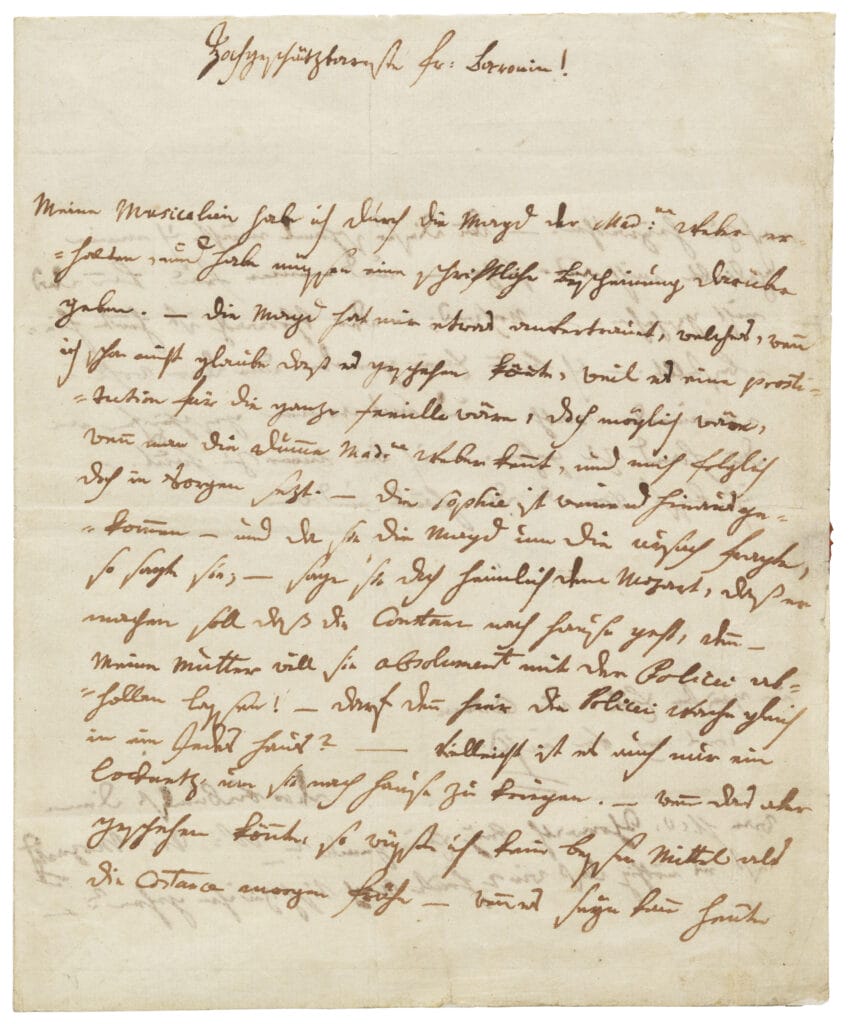 Hochgeschätzbareste fr: Baronin!
Meine Musicalien habe ich durch die Magd der Mad:me Weber er-
=halten, und habe müssen eine schriftliche bescheinung darüber
geben. — die Magd hat mir etwas anvertrauet, welches, wenn
ich schon nicht glaube daß es geschehen könnte, weil es eine prosti-
=tution für die ganze familie wäre, doch möglich wäre,
wenn man die dumme Mad:me Weber kennt, und mich folglich
doch in Sorgen sezt. — die Sophie ist weinend hinausge-
=kommen — und da sie die Magd um die ursach fragte,
so sagte sie; — sage sie doch heimlich dem Mozart, daß er
machen soll daß die Constanz nach hause geht, denn —
meine Mutter will sie absolument mit der Policei ab=
=hollen lassen! — darf denn hier die Policei Wache gleich
in ein Jedes haus? — vielleicht ist es auch nur ein
locknetz um sie nach hause zu kriegen. — wenn das aber
geschehen könnte, so wüsste ich kein bessers Mittel als
die Costance morgen frühe — wenns seyn kann heute